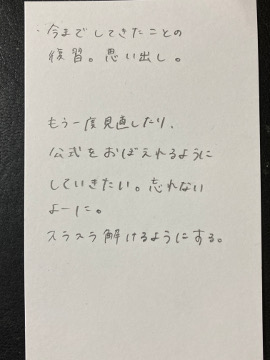 ・今までしてきたことの
復習。思い出し。
もう一度見直したり、
公式をおぼえれるように
していきたい。忘れない
よーに。
スラスラ解けるようにする。